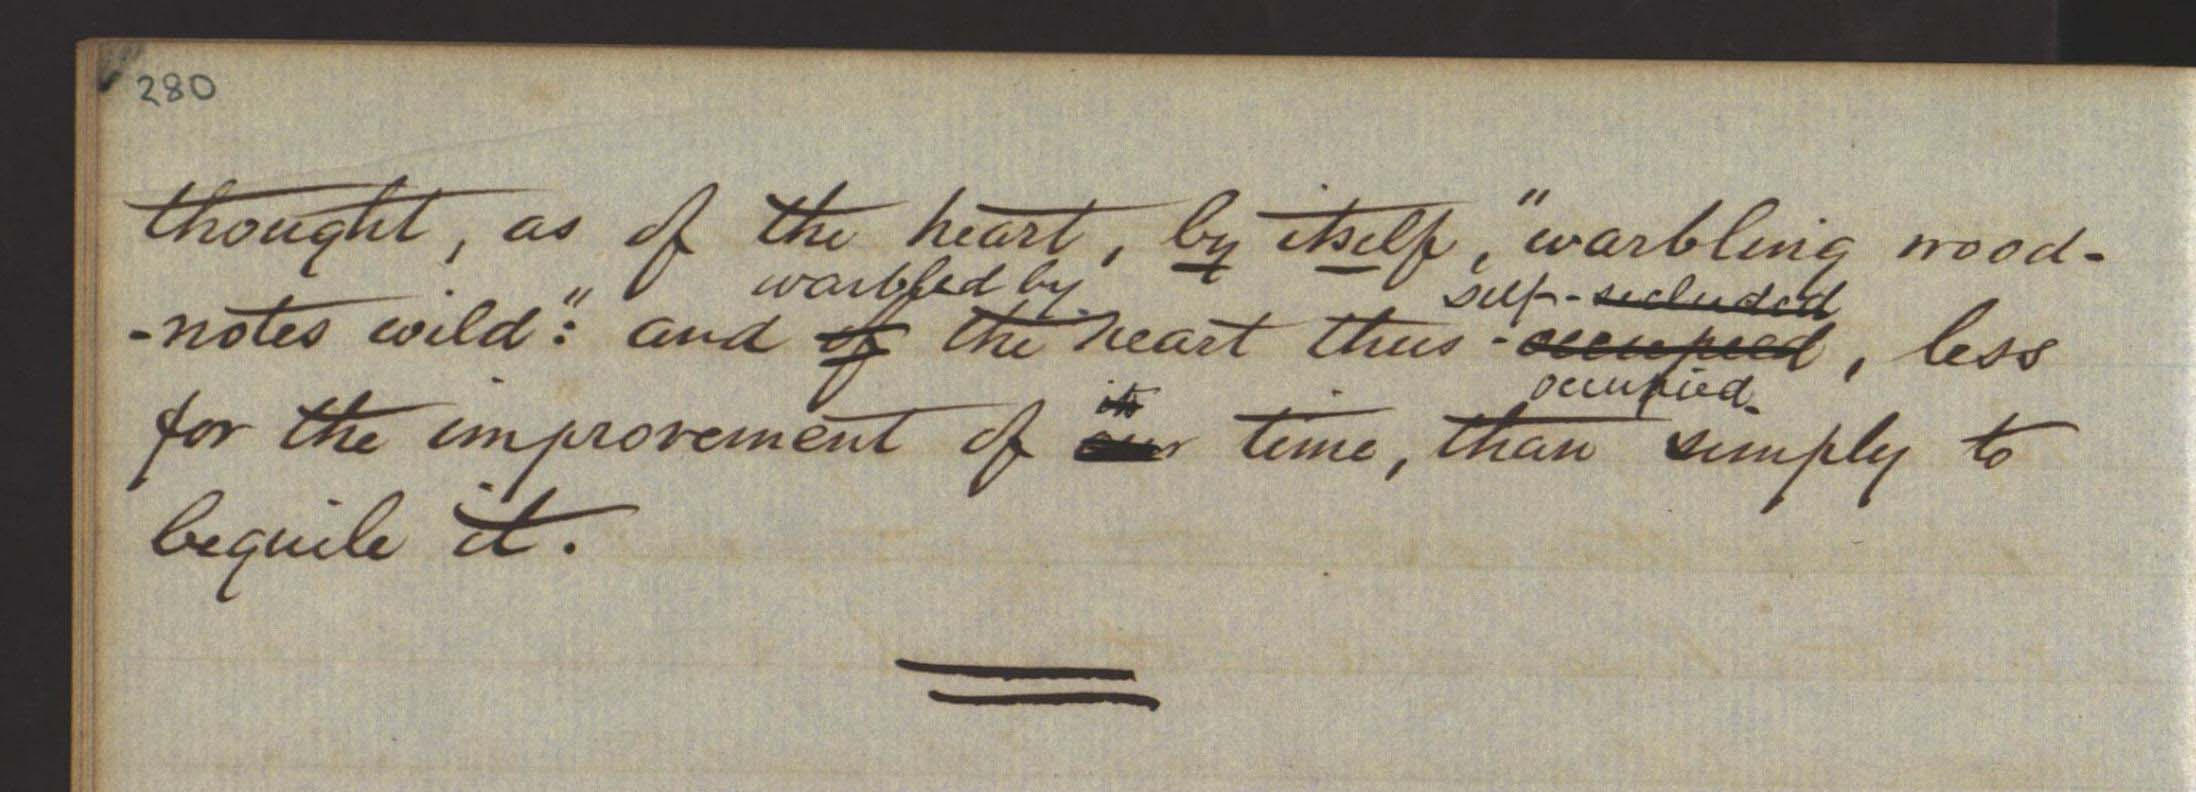 280
thought, as of the heart, by itself, "warbling wood-
warbled by self-secluded
-notes wild": and of the heart thus -occupied, less
its occupied
for the improvement of our time, than simply to
beguile it.